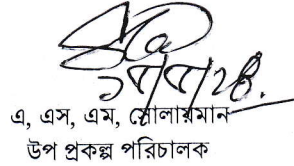 এ, এস, এম, সোলায়মান
উপ প্রকল্প পরিচালক